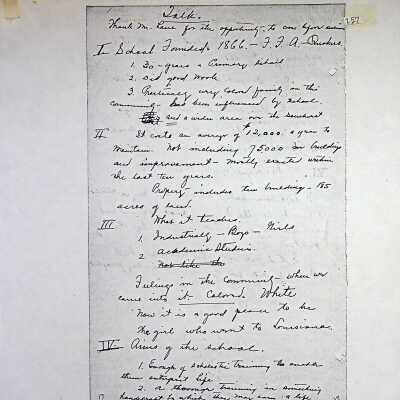 Talk.
Thank Mr. for the opportunity to come before
187
I School Founded 1866. - F. F. A - Quakers.
1. 30 - years a Primary School
2. Did good Work
3. Practically every Colored family in this
community - has been influenced by School.
and a wider area over the Southwest
II It costs an average of $12,000 a year to
Maintain. Not including 75000 for buildings
and improvement - mostly erected within
the last ten years.
Property includes ten buildings - 185
acres of land.
III What it teaches.
1. Industrially - Boys - Girls
2. Academic Studies.
Not like the
Feelings in the Community - when we
came into it - Colored. White
Now it is a good place to be
The girl who went to Louisiana.
IV - Aims of the school.
1. Enough of scholastic training to enable
them enter life
2. A thorough training in something
handcraft by which they may earn a life